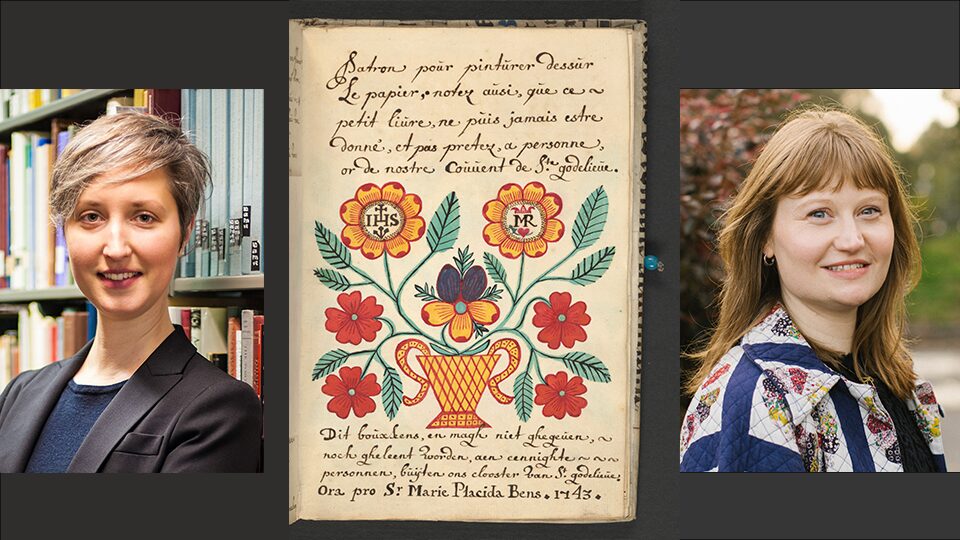 Patron poür pintürer dessür
Le papier, notez aüsi, qüe ce ~
petit liüre, ne püis jamais estre
donné, et pas pretez, a personne,
or de nostre Coüüent de Ste godelieüe.
IHS
MR
Dit boüxkens, en magh niet ghegeüen, ~
noch gheleent worden, aen cennighte ~ ~ ~
personnen, büÿten ons clooster van St godelieüe:
Ora pro Sr Marie Placida Bens. 1743.